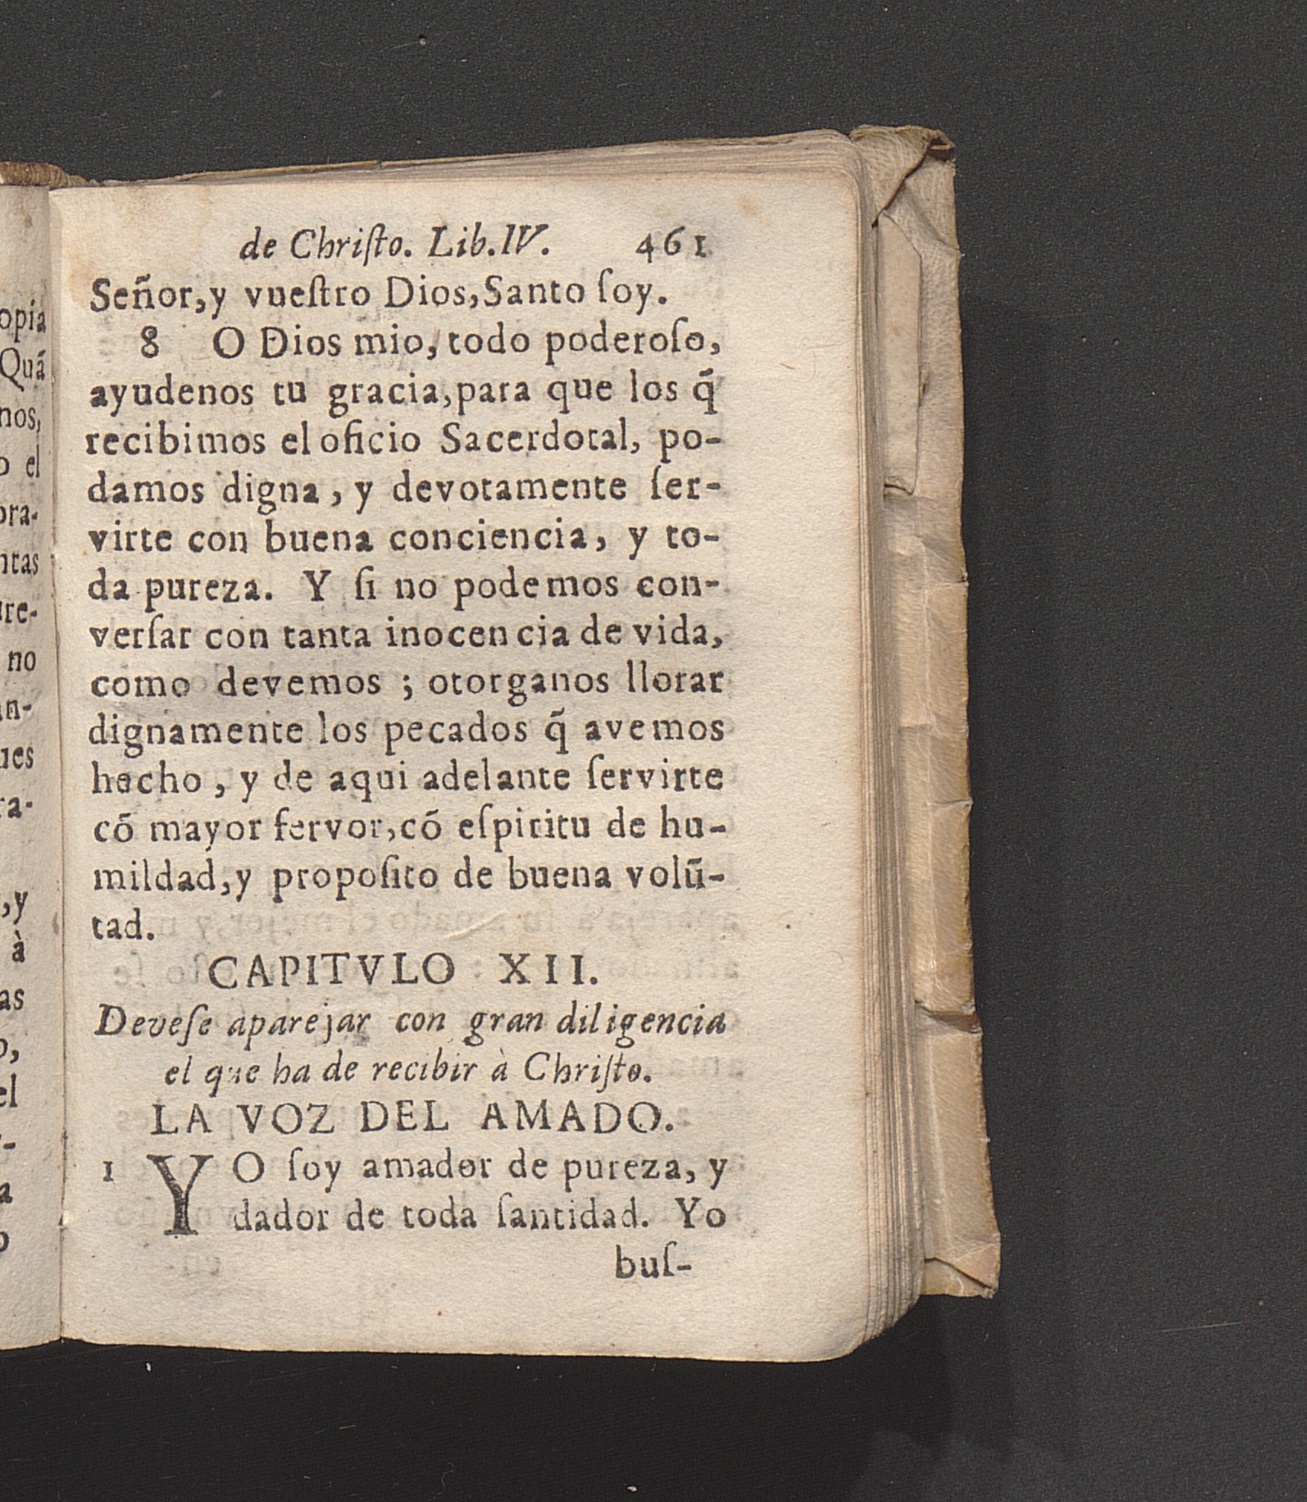 de Chriſto. Lib.IV. 461
Señor,y vueſtro Dios,Santo ſoy.
8 O Dios mio, todo poderoſo,
ayudenos tu gracia,para que los q̃
recibimos el oficio Sacerdotal, po-
damos digna, y devotamente ſer-
virte con buena conciencia, y to-
da pureza. Y ſi no podemos con-
verſar con tanta inocencia de vida,
como devemos ; otorganos llorar
dignamente los pecados q̃ avemos
hecho, y de aqui adelante ſervirte
cõ mayor fervor,cõ eſpiritu de hu-
mildad,y propoſito de buena volũ-
tad.
CAPITVLO XII.
Deveſe aparejar con gran diligencia
el que ha de recibir à Chriſto.
LA VOZ DEL AMADO.
1 YO ſoy amador de pureza, y
dador de toda ſantidad. Yo
buſ-
opia
Quã
nos,
o el
ora-
ntas
are-
no
an-
ues
ra-
,y
à
as
o,
el
-
a
o